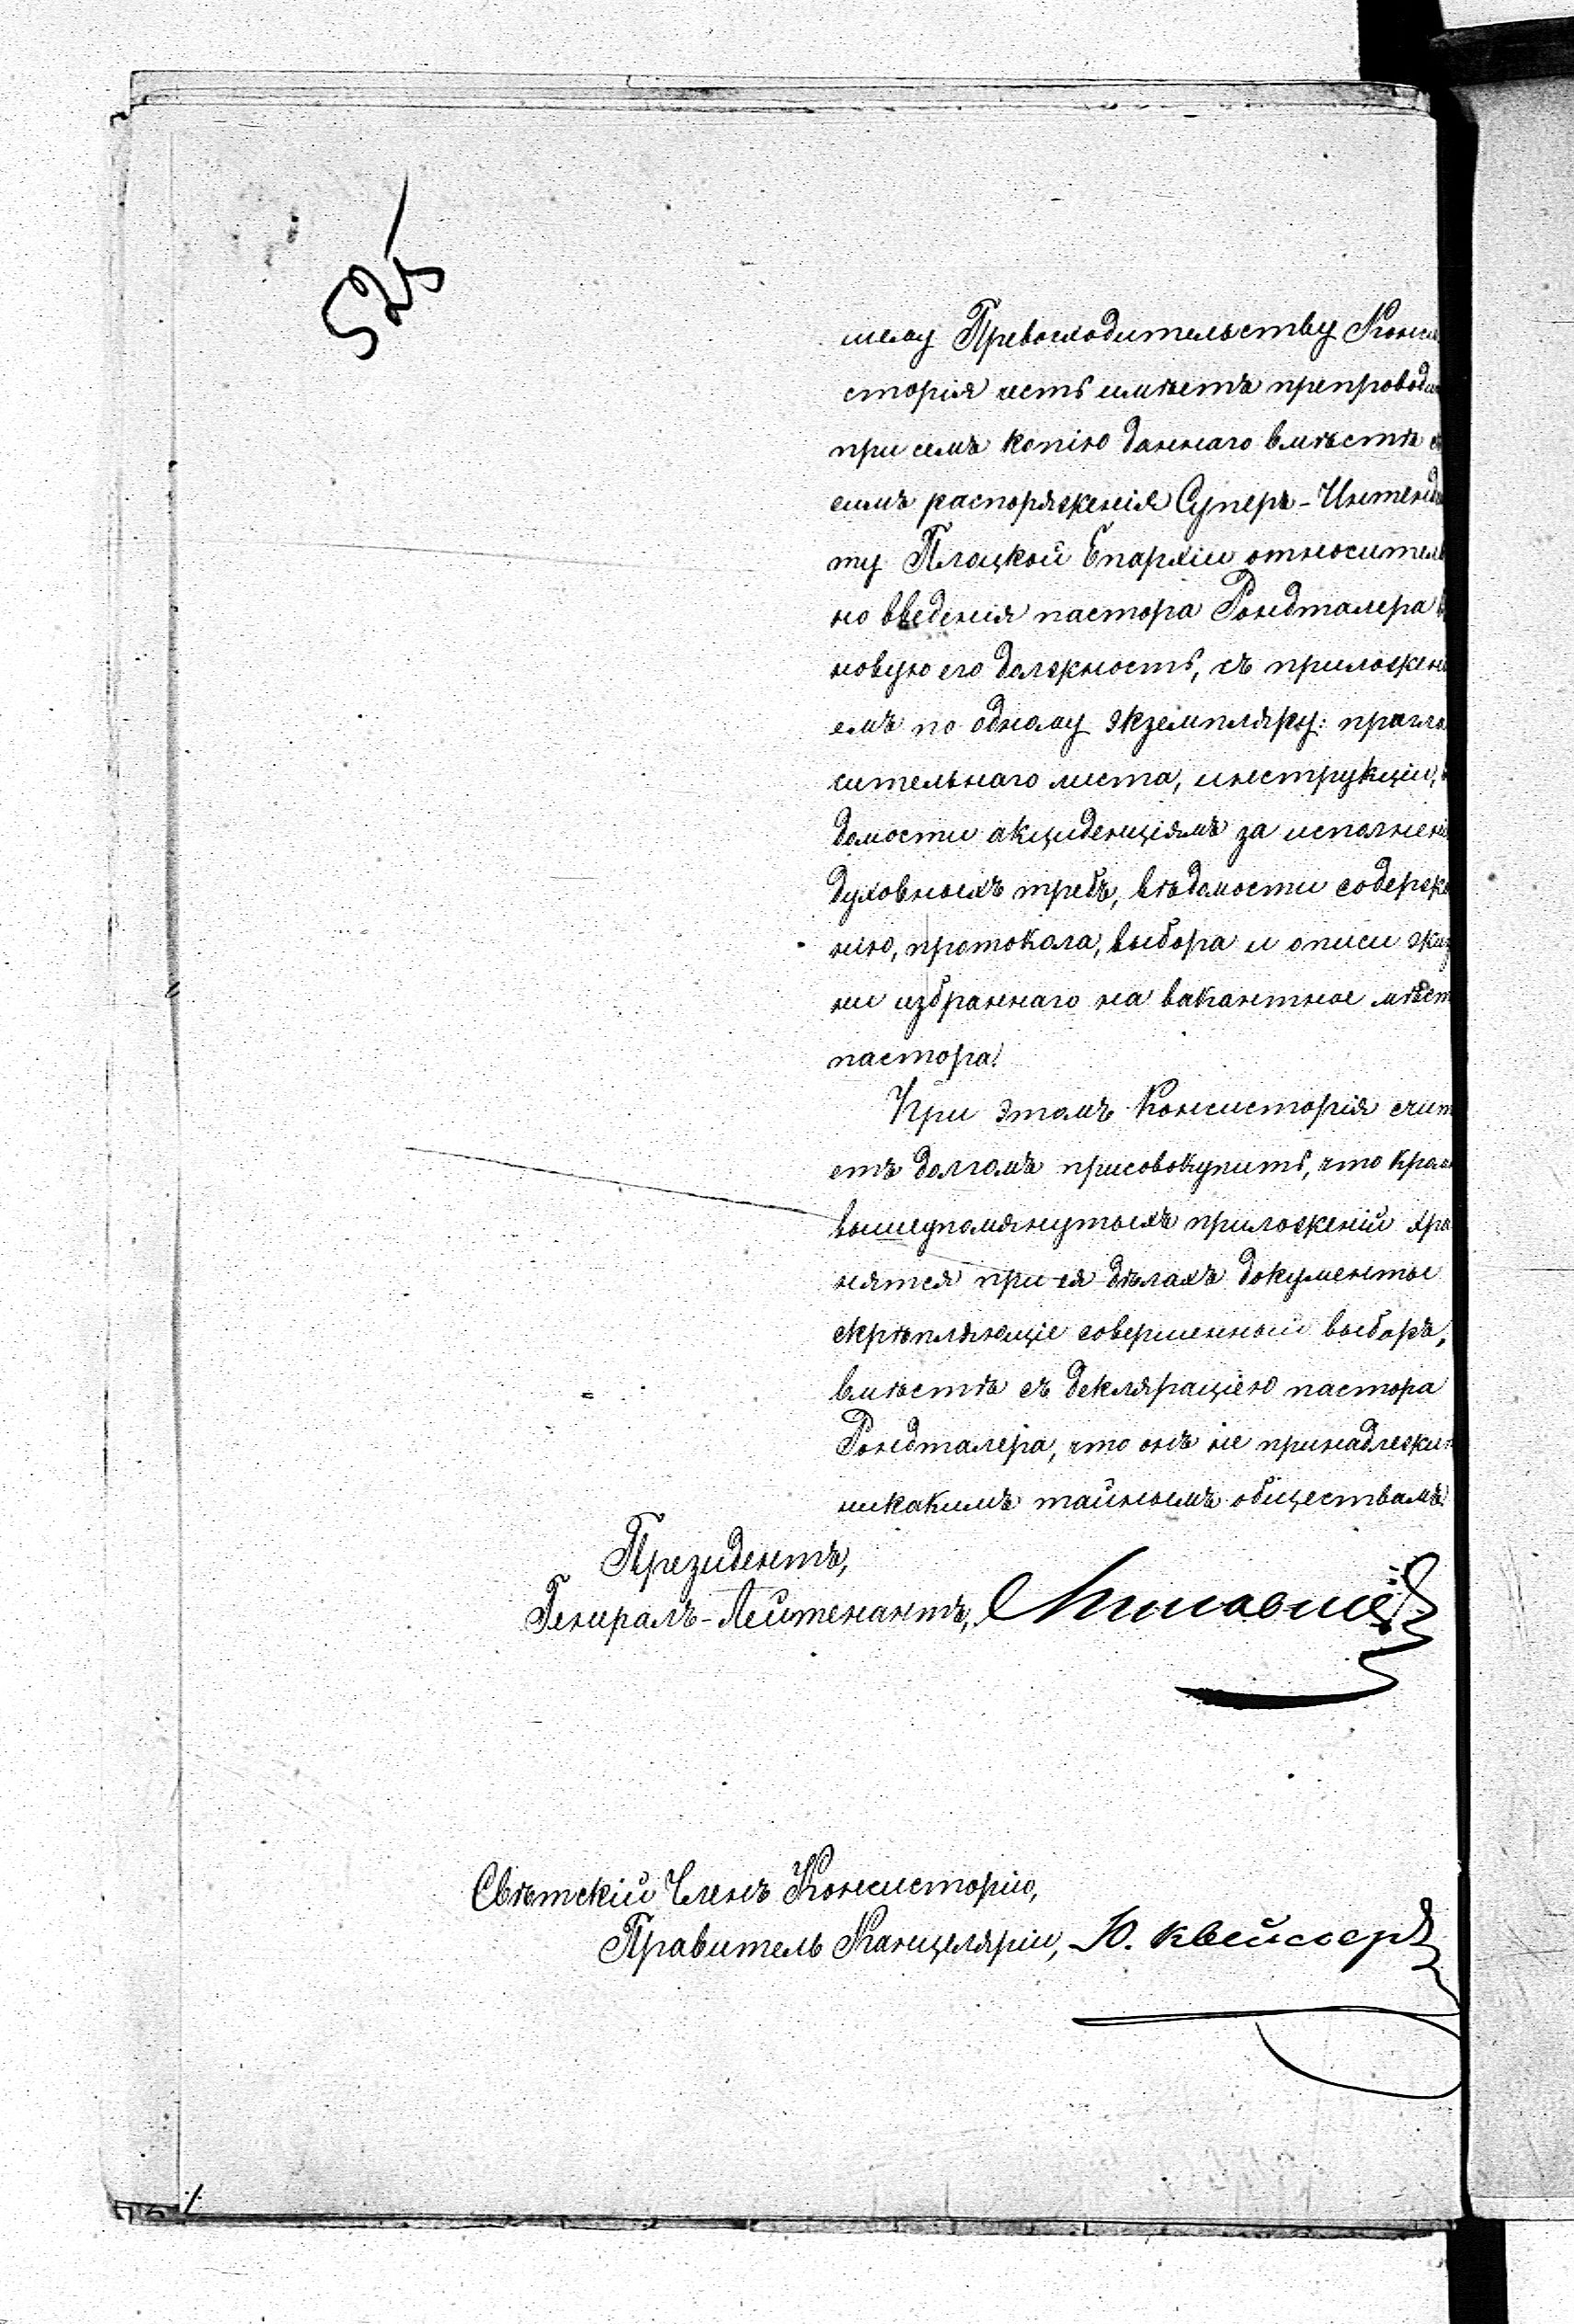 525
шему Превосходительству Конси
сторія честь имѣетъ препроводи
при семъ копію даннаго вмѣстѣ с
симъ распоряженія Суперъ-Интенда
ту Плоцкой Епархіи относитель
но введенія пастора Рондталера в
новую его должность, съ приложені
емъ по одному экземпляру: пригла
сительнаго листа, инструкціи, в
домости акциденціямъ за исполнені
духовныхъ требъ, вѣдомости содержа
нію, протокола, выбора и описи жиз
ни избраннаго на вакантное мѣст
пастора.
При этомъ Консисторія счит
етъ долгомъ присовокупить, что кром
вышеупомянутыхъ приложеній хра
нятся при ея дѣлахъ документы
скрѣпляющіе совершенный выборъ,
вмѣстѣ съ деклярацією пастора
Рондталера, что онъ не принадлежи
никакимъ тайнымъ обществамъ.
Президентъ,
Генералъ-Лейтенантъ,
Свѣтскій Членъ Консисторіи,
Правитель Канцеляріи, Ю. Квейссеръ